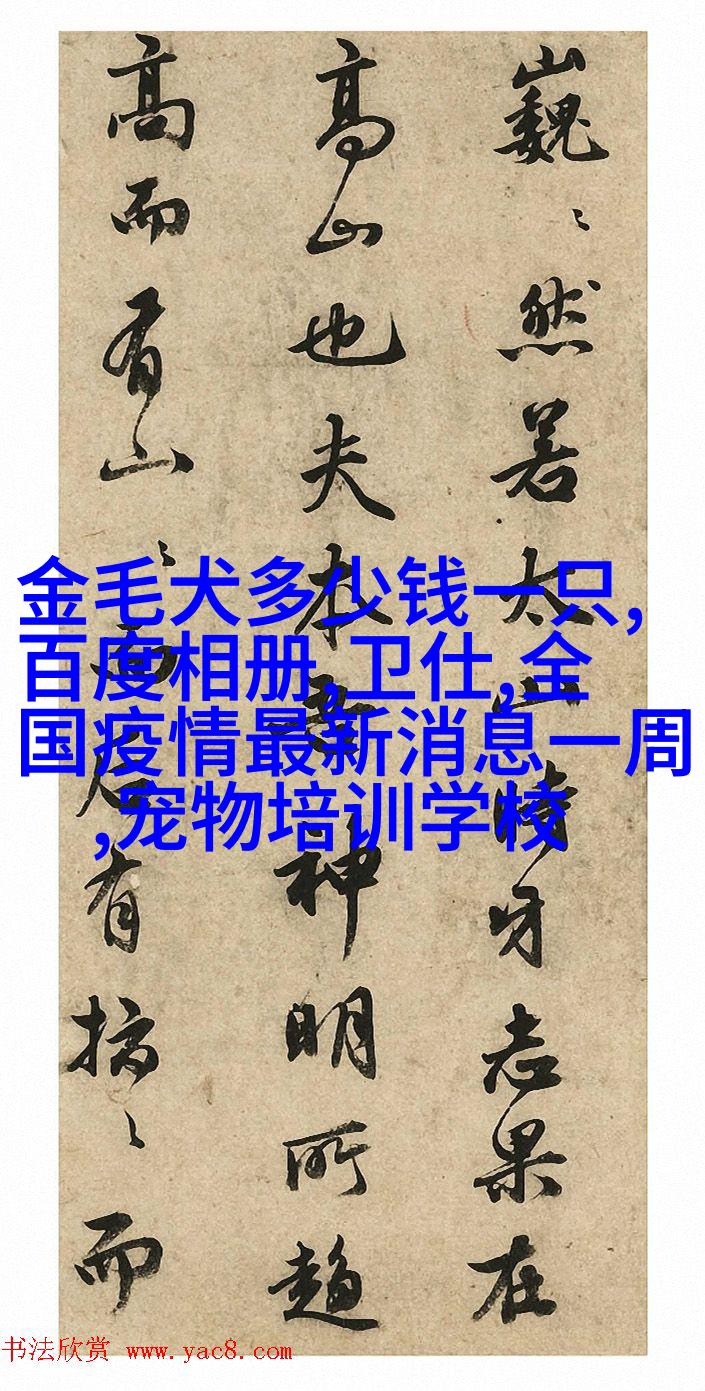 巍〻然若太山時牙志果在
高山也夫本神明所趨
高而有山〻而有〻而
金毛犬多少钱一只,
百度相册,卫仕,全
国疫情最新消息一周
,宠物培训学校
书法欣赏 www.yac8.com